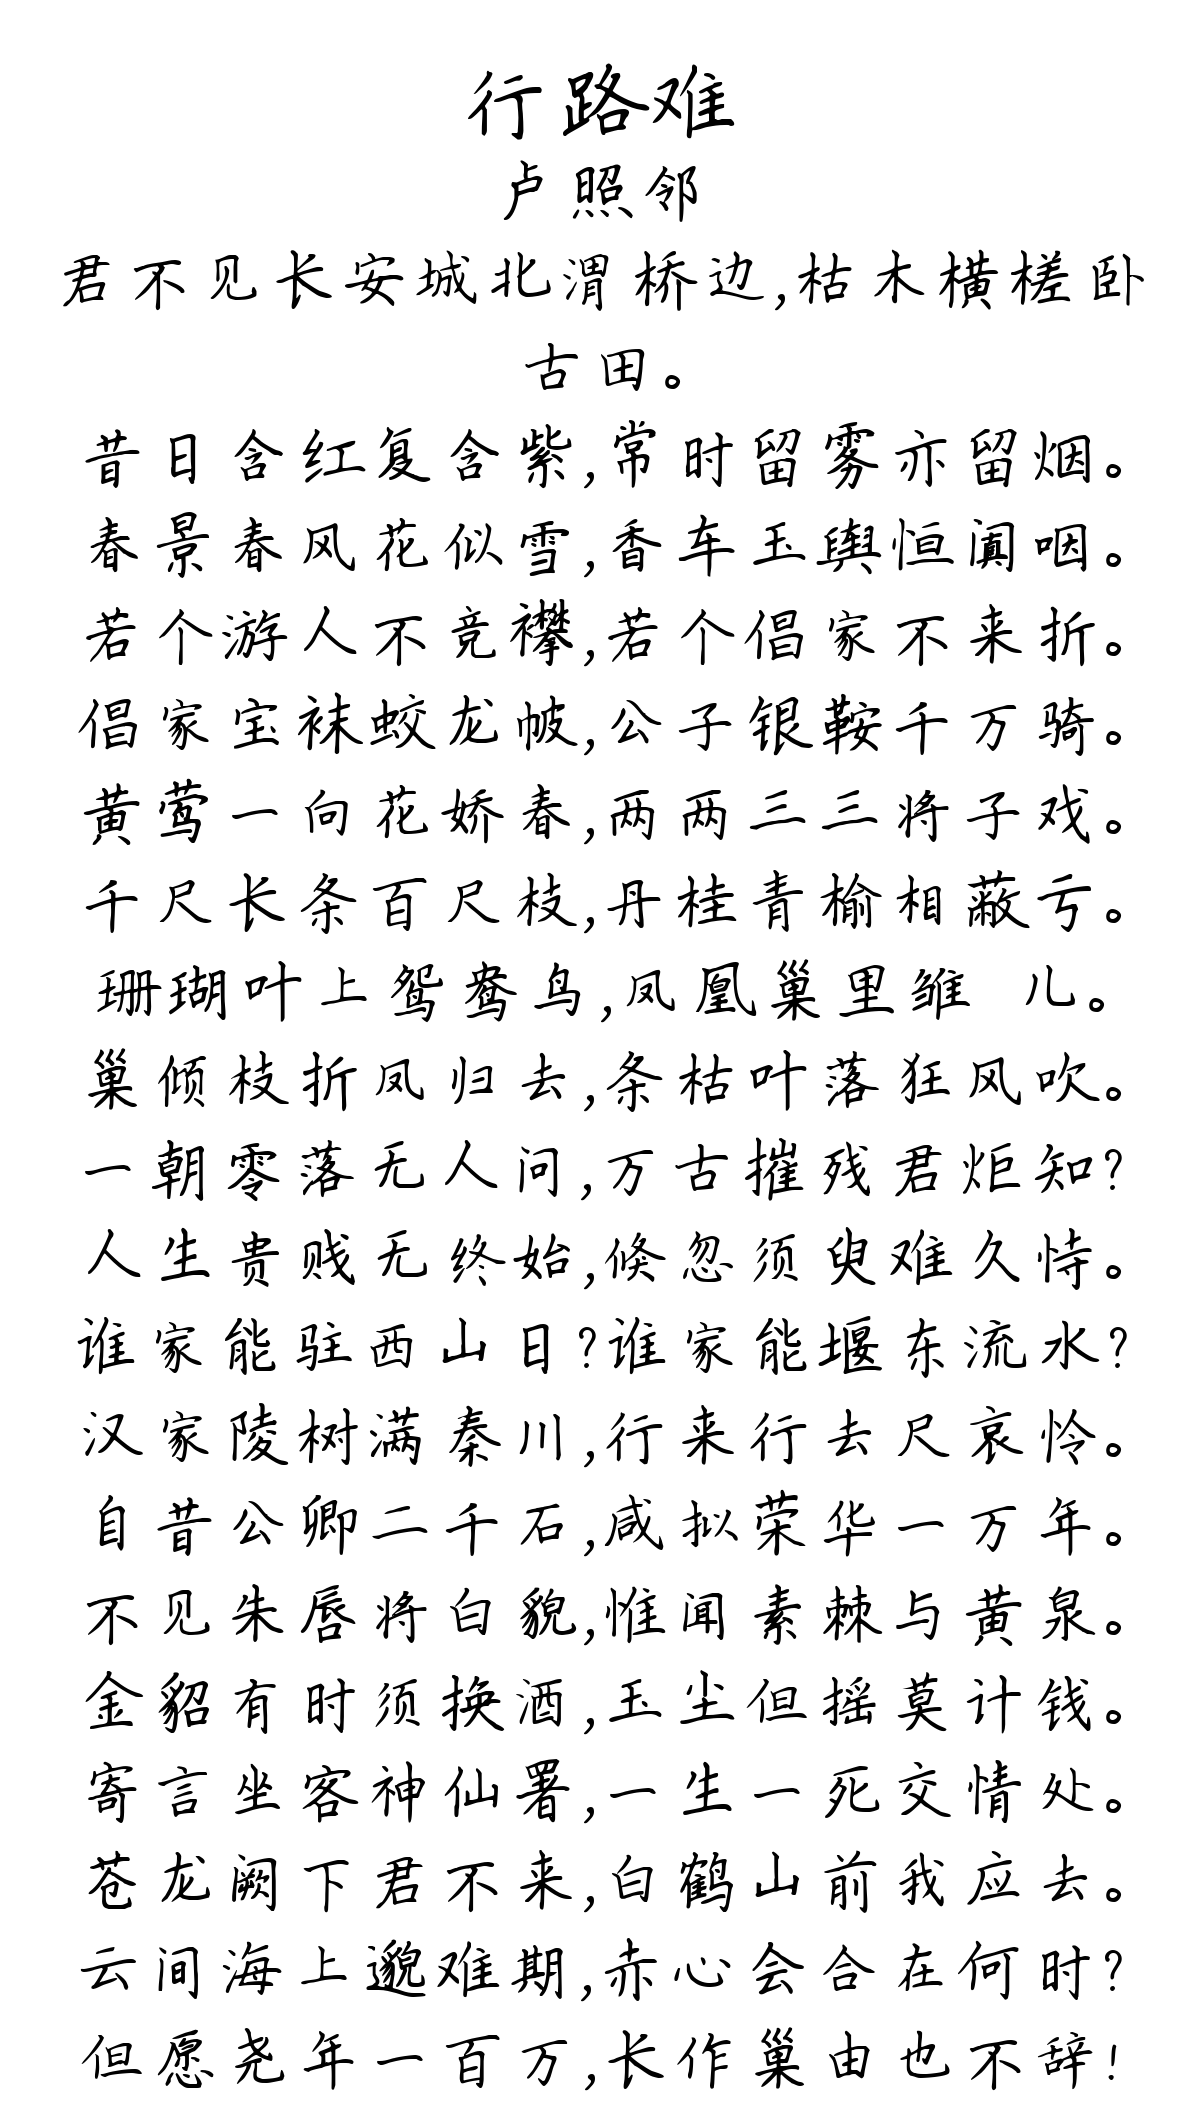 行路难
卢照邻
君不见长安城北渭桥边,枯木横槎卧
古田。
昔日含红复含紫,常时留雾亦留烟。
春景春风花似雪,香车玉舆恒阗咽。
若个游人不竞襻,若个倡家不来折。
倡家宝袜蛟龙帔,公子银鞍千万骑。
黄莺一向花娇春,两两三三将子戏。
千尺长条百尺枝,丹桂青榆相蔽亏。
珊瑚叶上鸳鸯鸟,凤凰巢里雏 儿。
巢倾枝折凤归去,条枯叶落狂风吹。
一朝零落无人问,万古摧残君炬知?
人生贵贱无终始,倏忽须臾难久恃。
谁家能驻西山日?谁家能堰东流水?
汉家陵树满秦川,行来行去尺哀怜。
自昔公卿二千石,咸拟荣华一万年。
不见朱唇将白貌,惟闻素棘与黄泉。
金貂有时须换酒,玉尘但摇莫计钱。
寄言坐客神仙署,一生一死交情处。
苍龙阙下君不来,白鹤山前我应去。
云间海上邈难期,赤心会合在何时?
但愿尧年一百万,长作巢由也不辞!